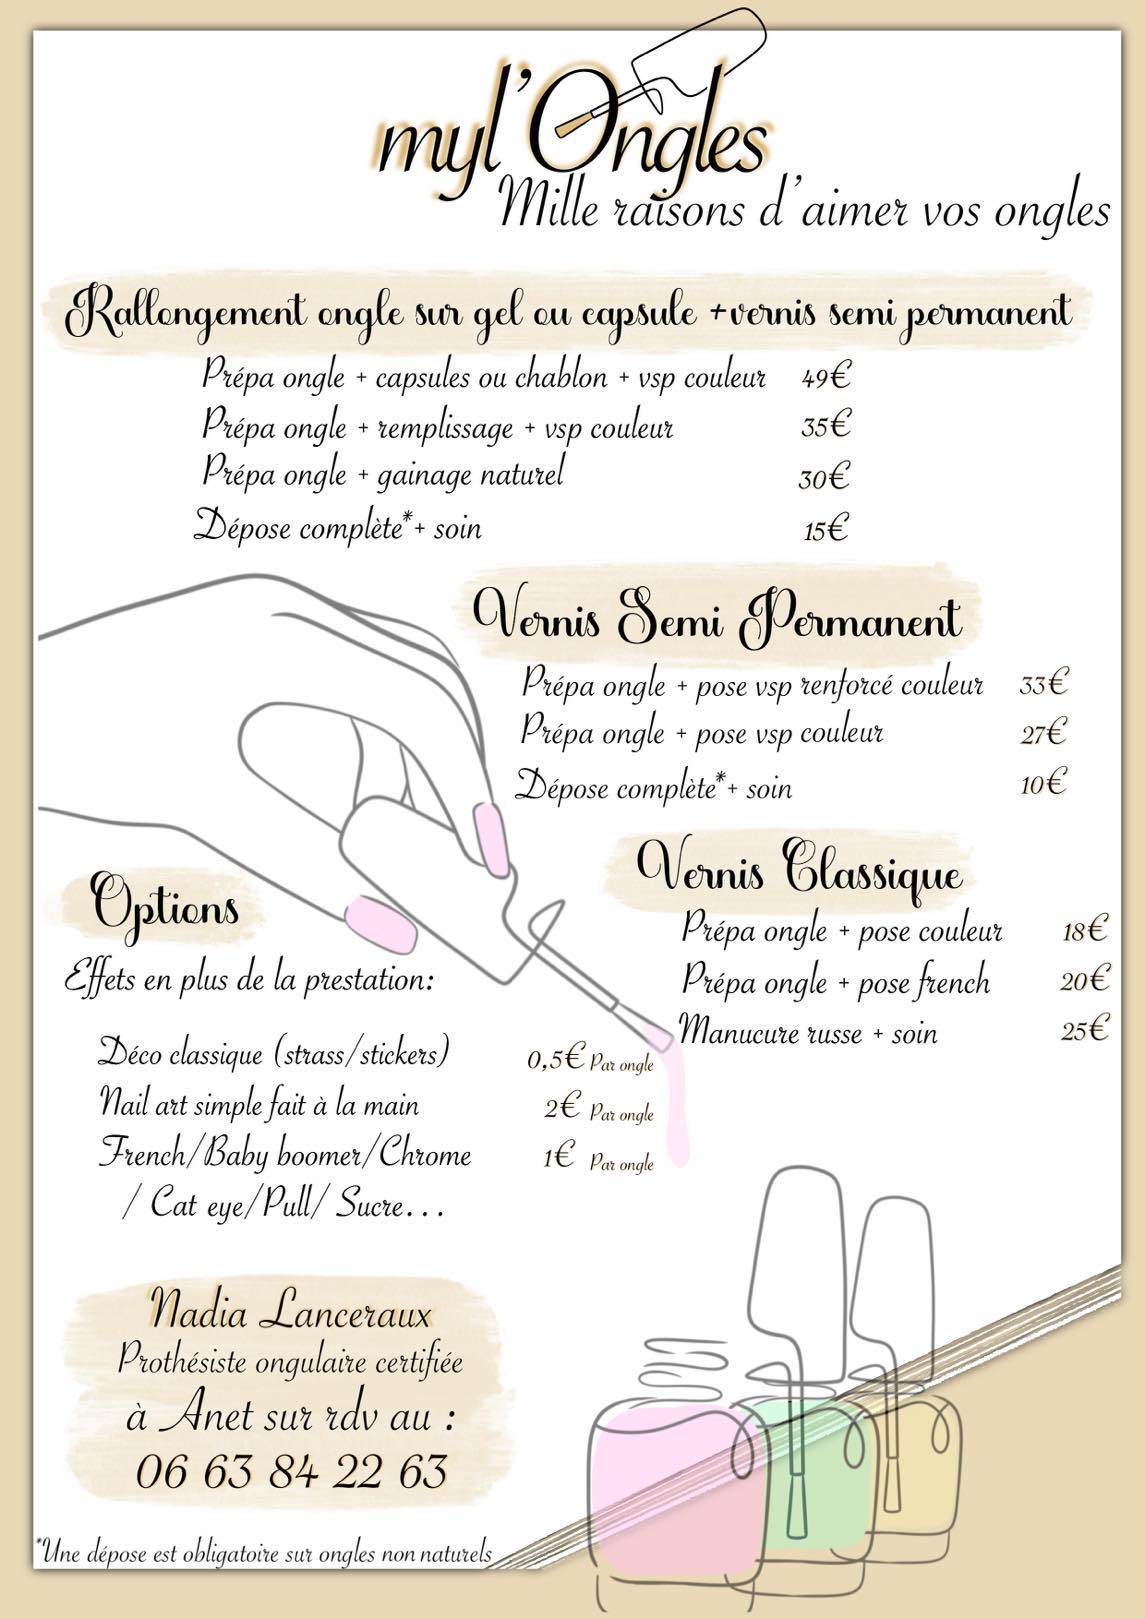 myl'Ongles
Mille raisons d'aimer vos ongles
Rallongement ongle sur gel ou capsule +vernis semi permanent
Prépa ongle + capsules ou chablon + vsp couleur 49€
Prépa ongle + remplissage + vsp couleur 35€
Prépa ongle + gainage naturel 30€
Dépose complète*+ soin 15€
Vernis Semi Permanent
Prépa ongle + pose vsp renforcé couleur 33€
Prépa ongle + pose vsp couleur 27€
Dépose complète*+ soin 10€
Vernis Classique
Prépa ongle + pose couleur 18€
Prépa ongle + pose french 20€
Manucure russe + soin 25€
Options
Effets en plus de la prestation:
Déco classique (strass/stickers) 0,5€ Par ongle
Nail art simple fait à la main 2€ Par ongle
French/Baby boomer/Chrome 1€ Par ongle
/ Cat eye/Pull/ Sucre...
Nadia Lanceraux
Prothésiste ongulaire certifiée
à Anet sur rdv au :
06 63 84 22 63
*Une dépose est obligatoire sur ongles non naturels